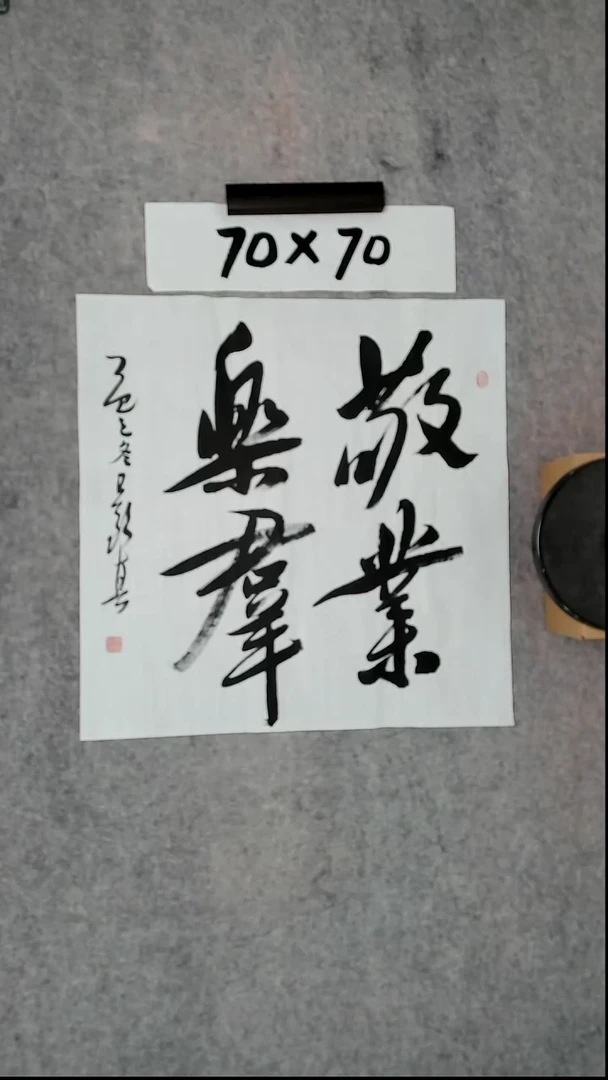 70×70
敬業
樂羣
乙巳之冬日